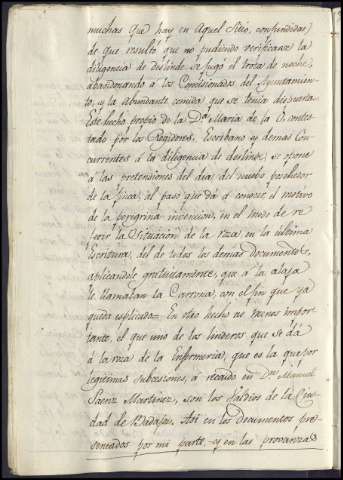 muchas que hay en Aquel Sitio, confundidas,
de que resultó que no pudiendo verificarse la
diligencia de Deslinde se fugó el torsa de noche,
abandonando à los Comisionados del Ayuntamien-
to, y la abundante comida que se tenia dispuesta.
Este hecho propio de la Dª Maria de la O, contes-
tado por los Regidores, Escribano y demas Con-
currentes à la diligencia de deslinde, se opone
à las pretensiones del dia del nuebo poseedor
de la finca, al paso que dá á conocer el motivo
de la peregrina invencion, en el modo de re-
ferir la Situacion de la roza en la ultima
Escritura, del de todos los demas Documentos,
aplicandole gratuitamente, que à la alaja
le llamaban la Carrona, con el fin que ya
queda esplicado. En otro hecho no menos impor-
tante, el que uno de los linderos que se dá
à la roza de la Enfermeria, que es la que por
legitimas subcesiones, à recaido en Dn. Manuel
Saenz Martinez, son los Valdios de la Ciu-
dad de Badajoz. Asi en los Documentos pre-
sentados por mi parte y en las probanzas